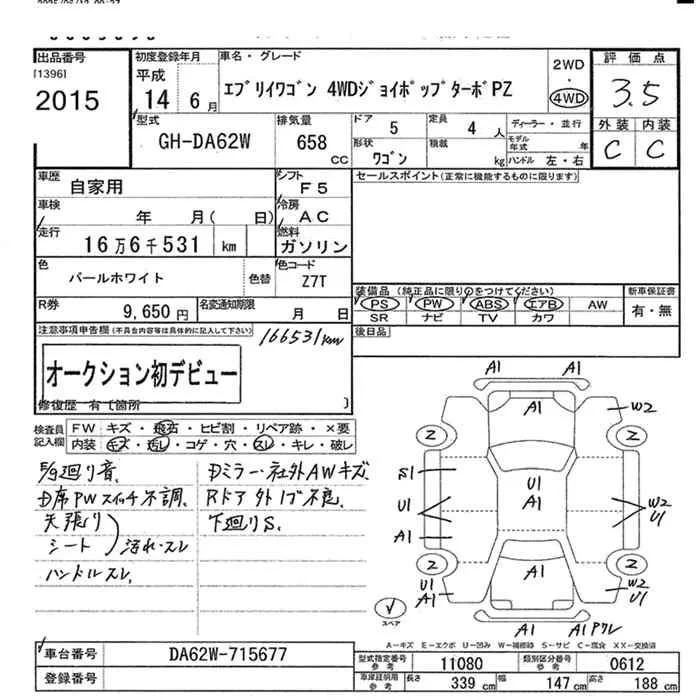 出品番号 初度登録年月 車名・グレード 2WD 評価点
[1396] 平成 エブリイワゴン 4WDジョイポップターボPZ ・ 3.5
2015 14 6月 4WD
型式 排気量 ドア 5 定員 4人 ディーラー・並行 外装 内装
GH-DA62W 658 CC 形状 ワゴン 積載 kg モデル年式 年 C C
ハンドル 左・右
車歴 自家用 シフト F5 セールスポイント(正常に機能するものに限ります)
車検 年 月( 日) 冷房 AC
走行 16万6千531 km 燃料 ガソリン
色 パールホワイト 色替 色コード Z7T
装備品(純正品に限り○をつけてください) 新車保証書
R券 9,650円 名変通知期限 月 日 PS PW ABS エアB AW 有・無
SR ナビ TV カワ
注意事項申告欄(不具合内容等は具体的に記入して下さい) 166531km 後日品
オークション初デビュー
修復歴 有〔箇所 〕
検査員記入欄 FW キズ・飛石・ヒビ割・リペア跡・×要
内装 キズ・汚レ・コゲ・穴・スレ・キレ・破レ
廻り音、 Dミラー・社外AWキズ
D席PWスイッチ不調、 Rドア外
天張り 下廻りS、
シート 汚れ・スレ
ハンドルスレ、
A1 A1
A1 W2
2 2
S1 U1
U1 A1 W2
A1 U1
2 2
U1 A1 W2
A1 U1
スペア A1 A1
A-キズ E-エクボ U-凹み W-補修跡 S-サビ C-腐食 XX-交換済
車台番号 DA62W-715677 型式指定番号 参考 11080 類別区分番号 参考 0612
登録番号 車庫証明用 参考 長さ 339 cm 幅 147 cm 高さ 188 cm